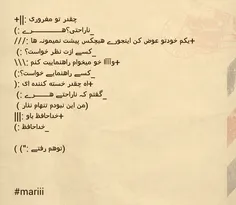 +چقدر تو مغروری :||
_ناراحتی؟هـــــــرے :)
+یکم خودتو عوض کن اینجورے هیچکس پیشت نمیمونه ها ://
_کسے ازت نظر خواست؟ :)
+وااااا خو میخوام راهنماییت کنم :\\\
_کسے راهنمایے خواست؟:)
+اه چقدر خسته کننده اے :(
_گفتم کہ ناراحتے هـــــرے :)
(من این نبودم تنهام نذار )
+خداحافظ یاو :|||
_خداحافظ :)
(توهم رفتے :") )
#mariii